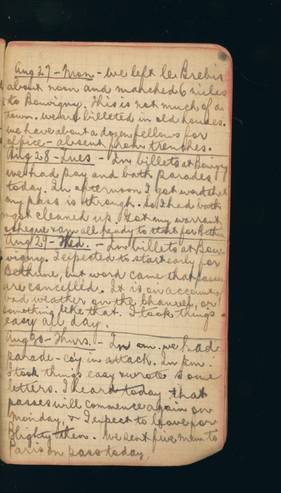 Aug 27 - Mon - We left le Brebis
about noon and marched 6 miles
to Bouvigny. This is not much of a
town. We are billeted in old houses.
We have about a dozen fellows for
office - absent from trenches.
Aug 28 - Tues - In billets at Bouvigny
we had pay and bath parades
today. In afternoon I got word that
my pass is through. So I had bath
got cleaned up. Got my warrant
cheque & am all ready to start for
Aug 29 - Wed. - In billets at Bou-
vigny. I expected to start early for
Bethune, but word came that passes
are cancelled. It is on account
bad weather on the channel, or
something like that. I took things
easy all day.
Aug 30 - Thurs. - In am. we had
parade - coy in attack. In p.m.
I took things easy & wrote some
letters. I heard today that
passes will commence again on
Monday, & I expect to leave for
Blighty then. We sent five men to
Paris on pass today.